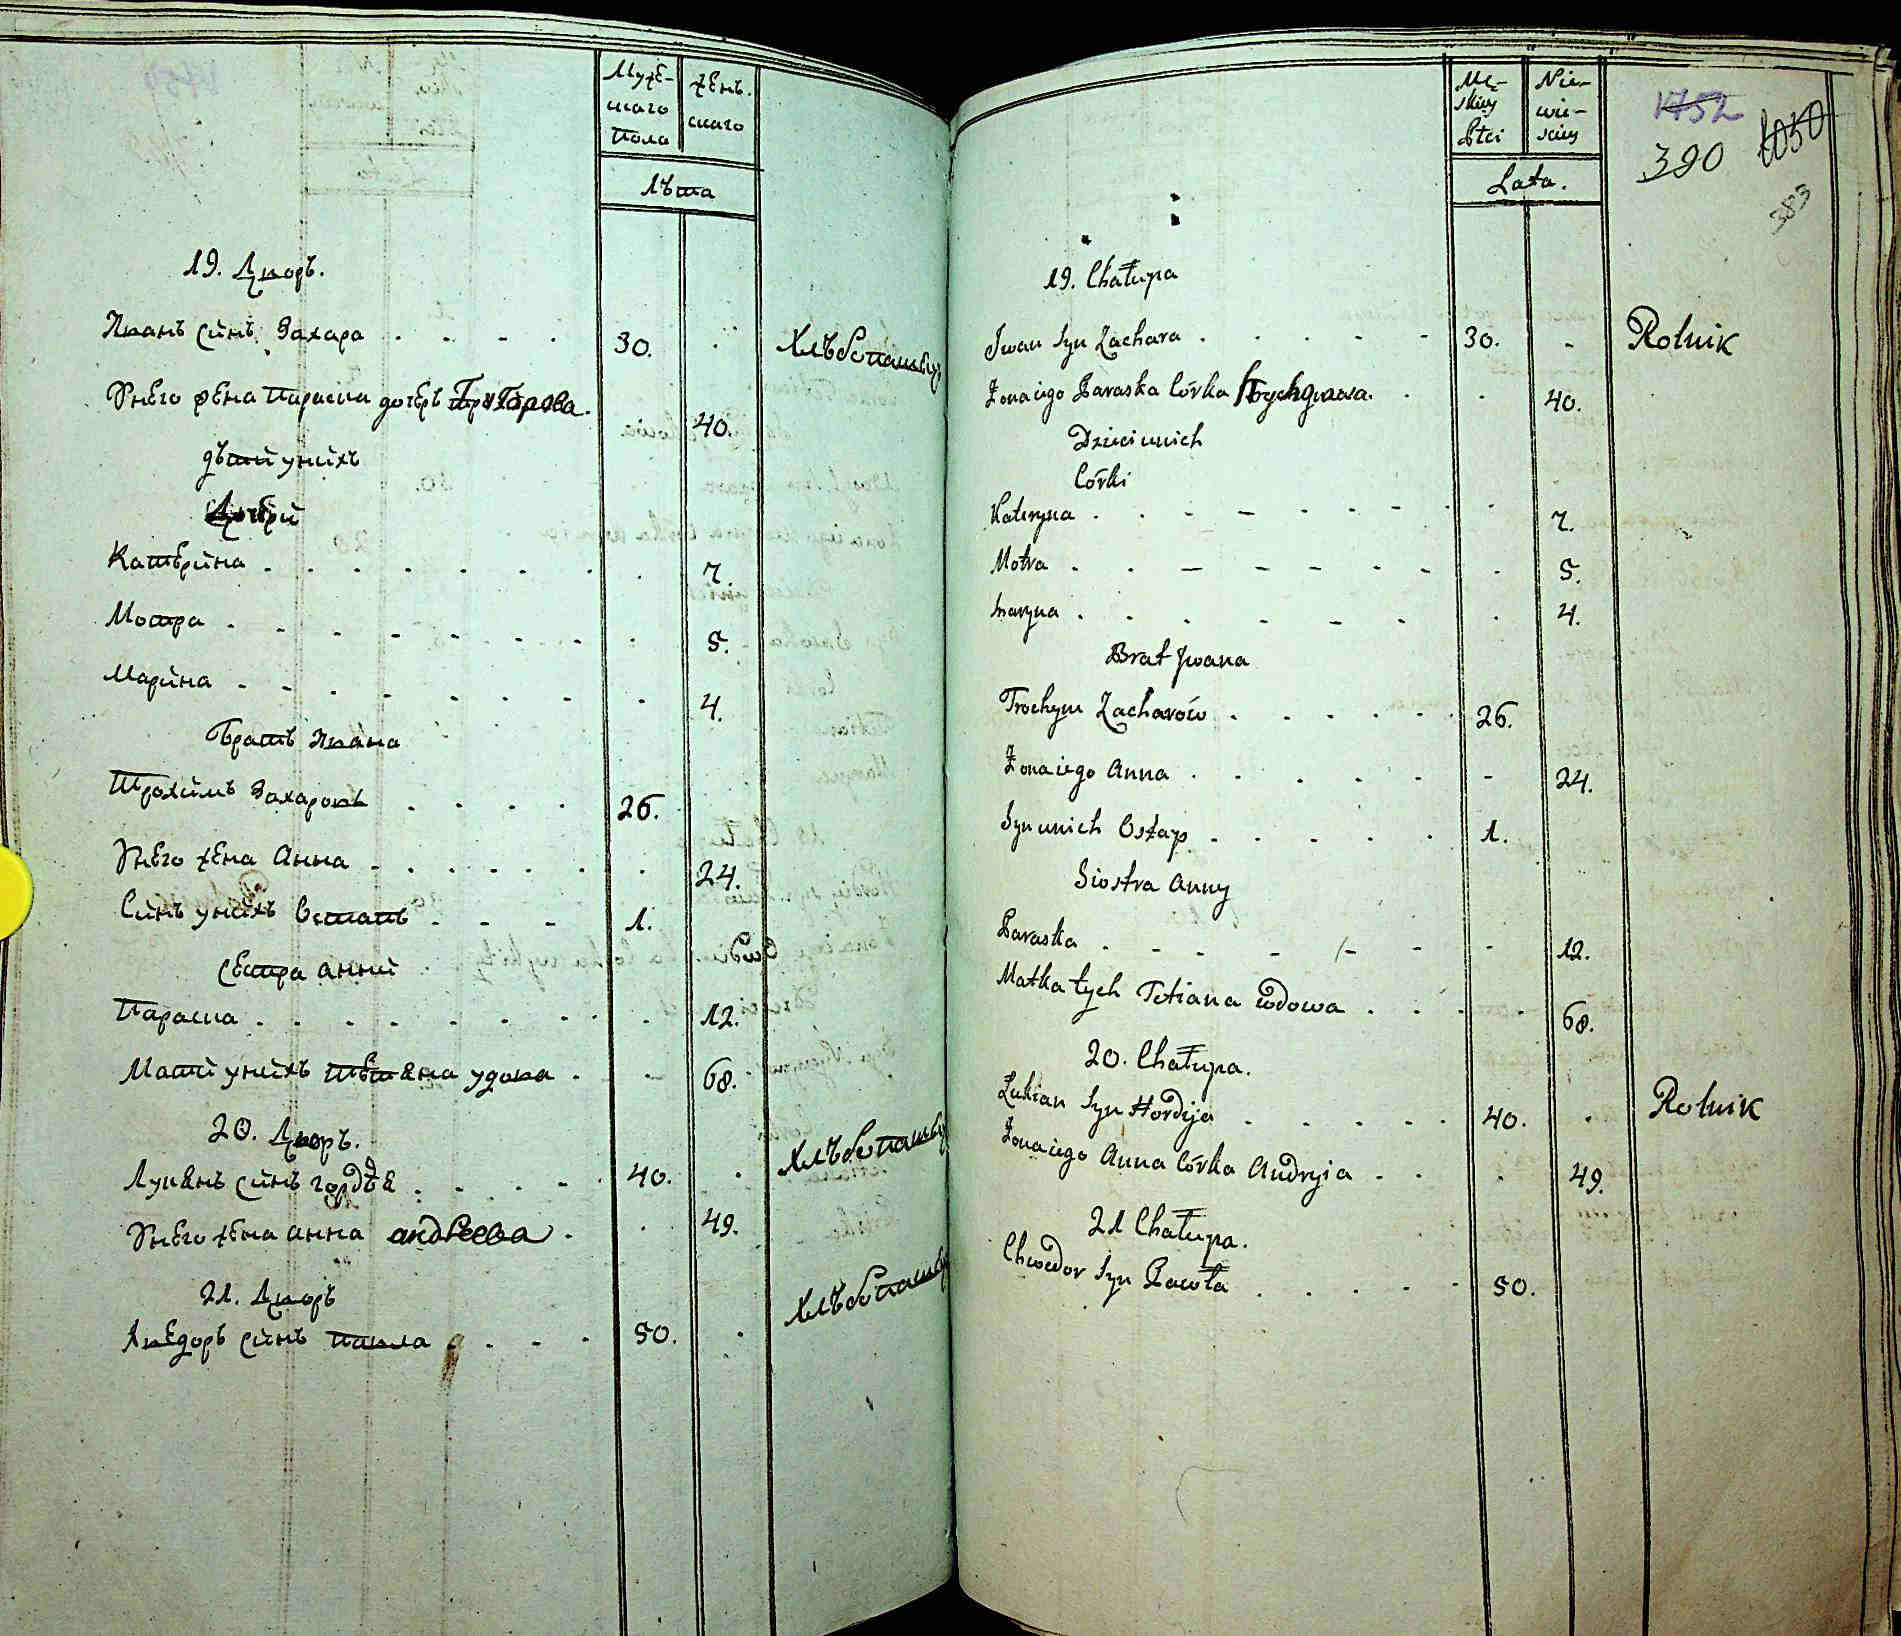 Муже-
скаго
пола
Жень-
скаго
Лѣта
19. Дворъ.
Иванъ синъ Захара 30. Хлѣбопашец
Унего жена Параска дочерь Григорова. 40.
дѣти унихъ
Дочери
Катерина 7.
Мотра 5.
Марина 4.
Братъ Ивана
Трохимъ Захаровъ 26.
Унего жена Анна 24.
Синъ унихъ Остапъ 1.
Сестра Анни
Параска 12.
Мати унихъ Тетяна удова 68.
20. Дворъ.
Лукянъ синъ Гордѣя 40. Хлѣбопашец
Унего жена Анна андреева 49.
21. Дворъ
Хведоръ синъ Павла 50. Хлѣбопашец
Mę-
skiey
Płci
Nie-
wie-
sciey
Lata.
1752
390
1050
389
19. Chałupa
Jwan Syn Zachara 30. Rolnik
Żona iego Paraska Córka 40.
Dzieci unich
Córki
Kateryna 7.
Motra 5.
Maryna 4.
Brat Jwana
Trochym Zacharów 26.
Żona iego Anna 24.
Syn unich Ostap 1.
Siostra Anny
Paraska 12.
Matka tych Tetiana Wdowa 68.
20. Chałupa.
Łukian Syn Hordija 40. Rolnik
Żona iego Anna Córka Andryia 49.
21 Chałupa.
Chwedor Syn Pawła 50.